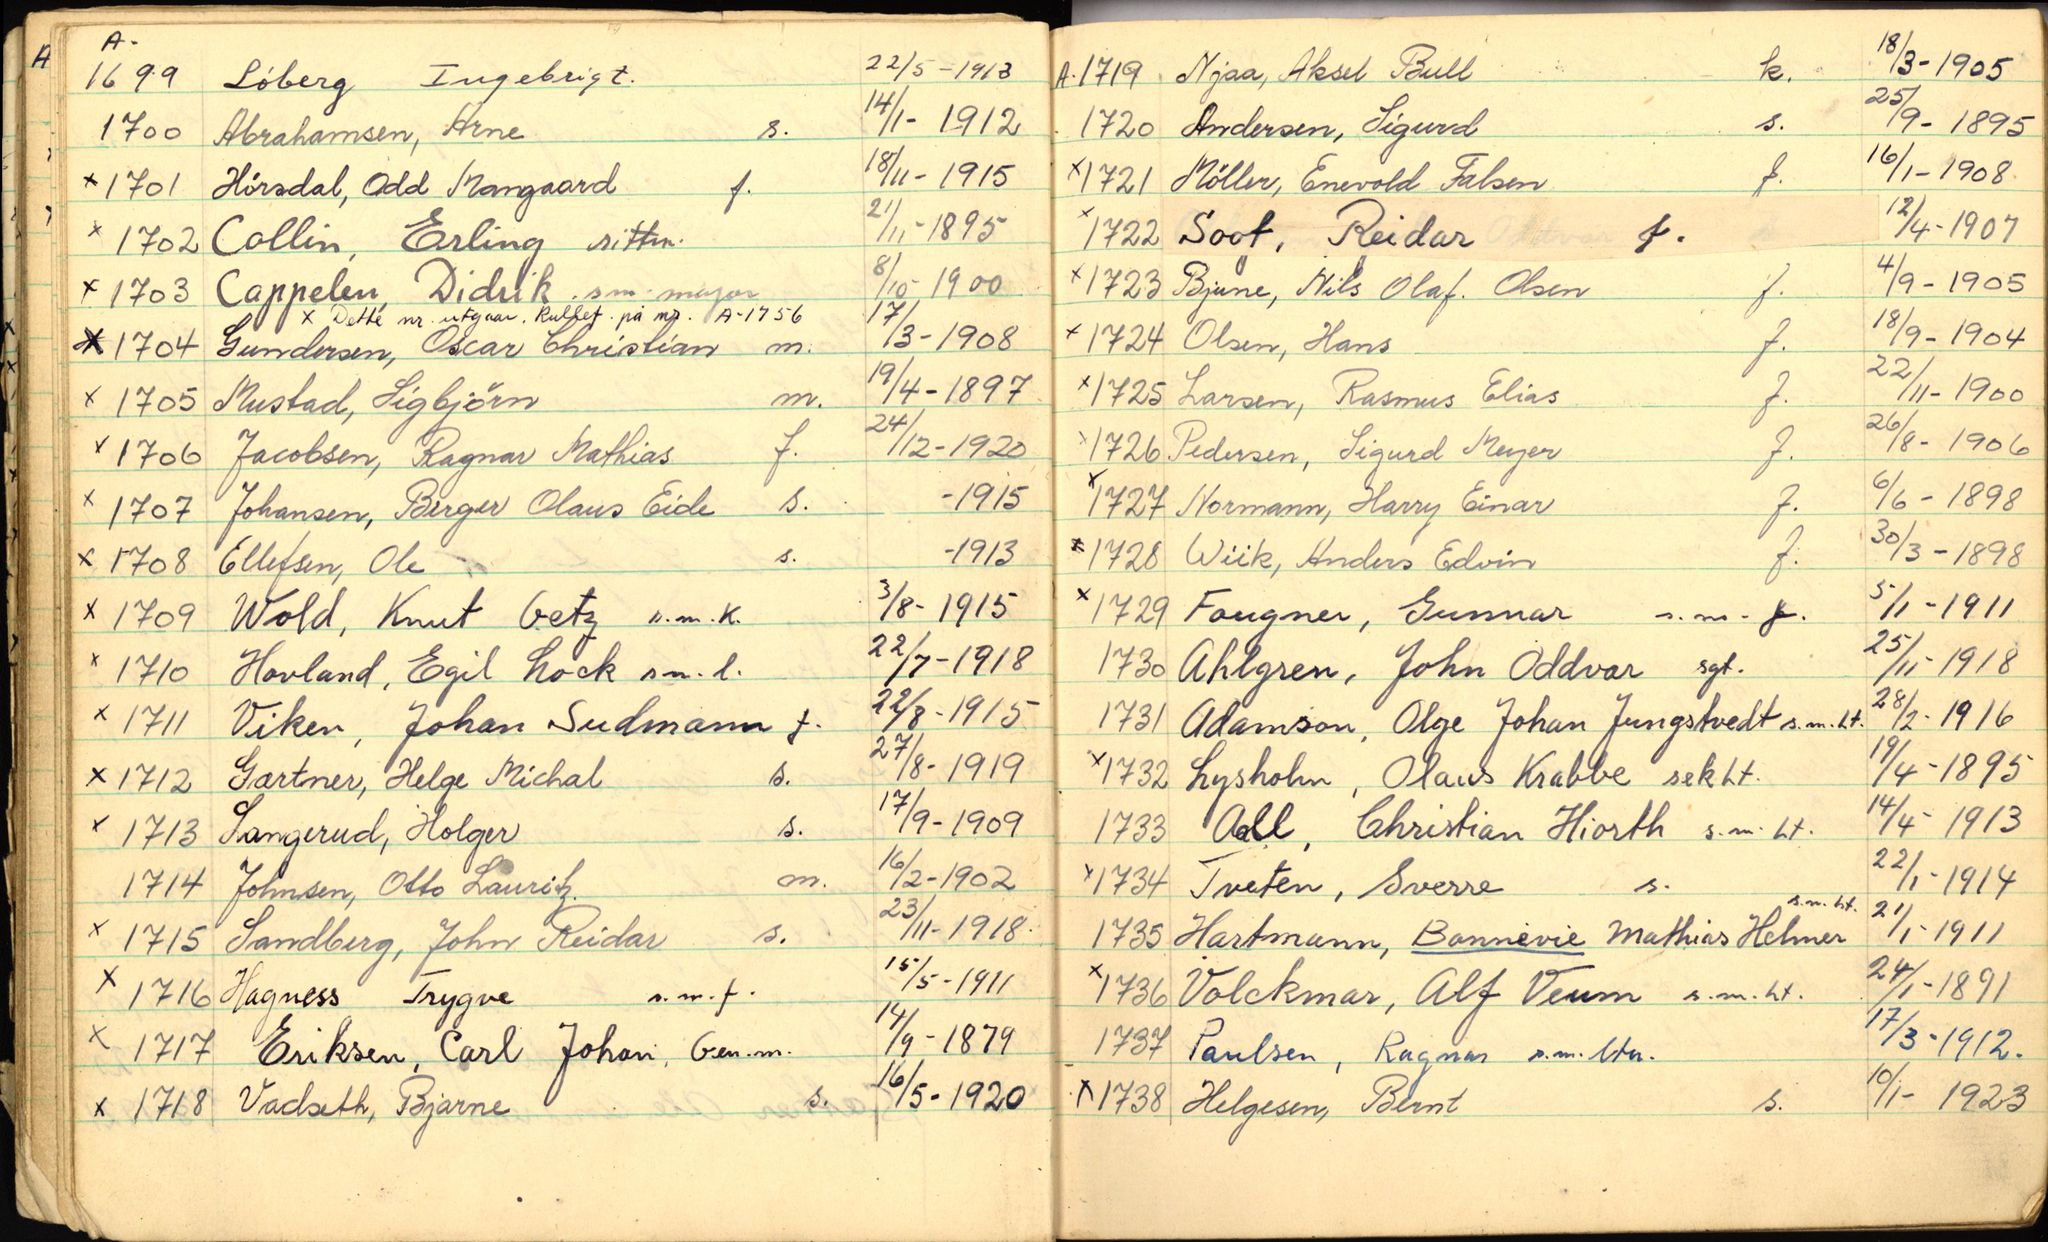 A
A-
1699 Lóberg Ingebrigt. 22/5-1913
1700 Abrahamsen, Arne s. 14/1- 1912
x 1701 Hörsdal, Odd Mangaard f. 18/11- 1915
x 1702 Collin, Erling rittm. 21/11-1895
x 1703 Cappelen, Didrik sm-major 8/10- 1900
x Dette nr. utgaar. Rullef. på nr. A-1756
x 1704 Gundersen, Oscar Christian m. 17/3-1908
x 1705 Mustad, Sigbjörn m. 19/4-1897
x 1706 Jacobsen, Ragnar Mathias f. 24/12-1920
x 1707 Johansen, Birger Olaus Eide s. -1915
x 1708 Ellefsen, Ole s. -1913
x 1709 Wold, Knut Getz s.m.k. 3/8-1915
x 1710 Hovland, Egil Lock s.m.l. 22/7-1918
x 1711 Viken, Johan Sudmann f. 22/8-1915
x 1712 Gærtner, Helge Michal s. 27/8-1919
x 1713 Sangerud, Holger s. 17/9-1909
1714 Johnsen, Otto Lauritz. m. 16/2-1902
x 1715 Sandberg, John Reidar s. 23/11-1918
x 1716 Hagness Trygve s.m.f. 15/5-1911
x 1717 Eriksen, Carl Johan, Gen.m. 14/9-1879
x 1718 Vadseth, Bjarne s. 16/5-1920
A.1719 Njaa, Aksel Bull k. 18/3-1905
1720 Andersen, Sigurd s. 25/9- 1895
x 1721 Möller, Enevold Falsen f. 16/1-1908
x 1722 Soot, Reidar f. 12/4-1907
x 1723 Bjune, Nils Olaf. Olsen f. 4/9-1905
x 1724 Olsen, Hans f. 18/9-1904
x 1725 Larsen, Rasmus Elias f. 22/11-1900
x 1726 Pedersen, Sigurd Meyer f. 26/8- 1906
x 1727 Normann, Harry Einar f. 6/6-1898
x 1728 Wiik, Anders Edvin f. 30/3-1898
x 1729 Fougner, Gunnar s.m-f. 5/1-1911
1730 Ahlgren, John Oddvar sgt. 25/11-1918
1731 Adamson, Olge Johan Jungstvedt s.m.Lt. 28/2-1916
x 1732 Lysholm, Olaus Krabbe sekLt. 19/4-1895
1733 Aall, Christian Hiorth s.m.Lt. 14/4- 1913
x 1734 Tveten, Sverre s. 22/1-1914
1735 Hartmann, Bonnevie Mathias Helmer s.m.Lt. 21/1-1911
x 1736 Volckmar, Alf Veum s.m.Lt. 24/1-1891
1737 Paulsen, Ragnar s.m.ltn. 17/3-1912.
x 1738 Helgesen, Bernt s. 10/1- 1923